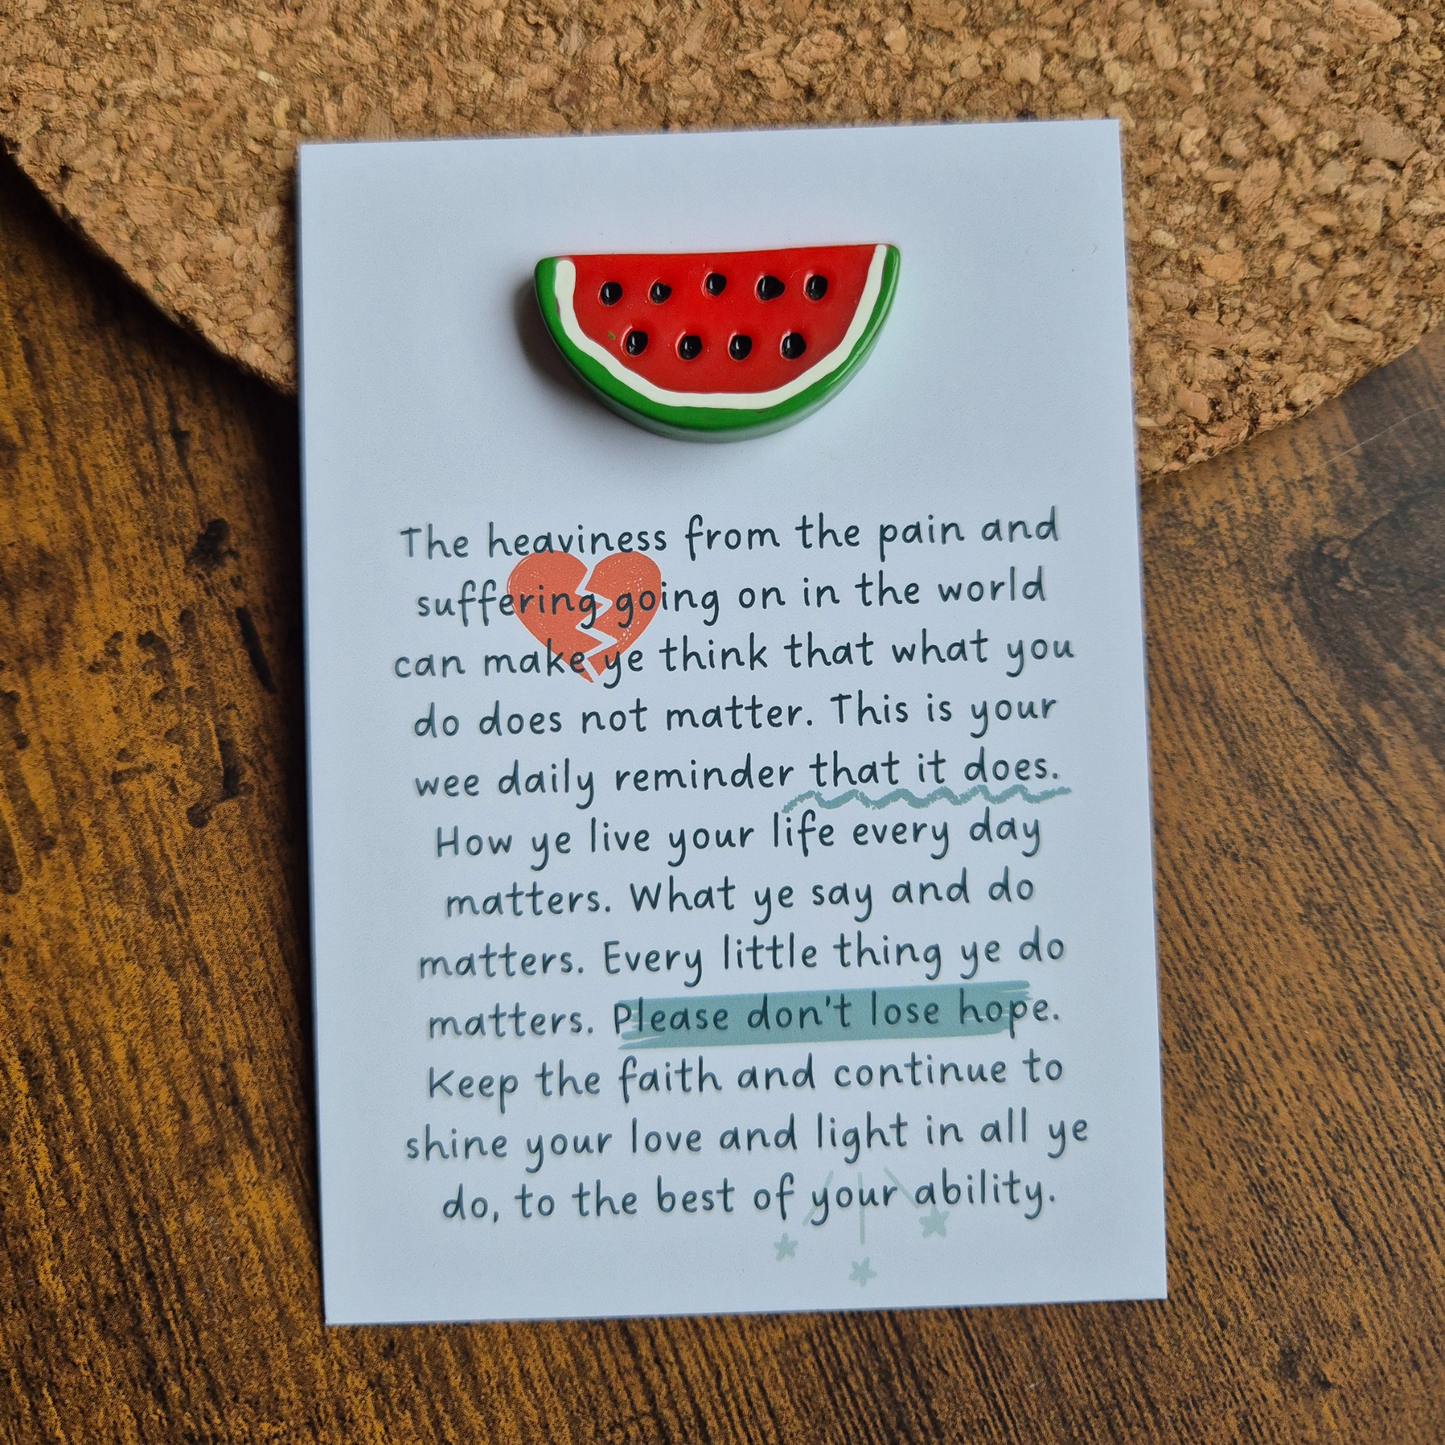 The heaviness from the pain and
suffering going on in the world
can make ye think that what you
do does not matter. This is your
wee daily reminder that it does.
How ye live your life every day
matters. What ye say and do
matters. Every little thing ye do
matters. Please don't lose hope.
Keep the faith and continue to
shine your love and light in all ye
do, to the best of your ability.